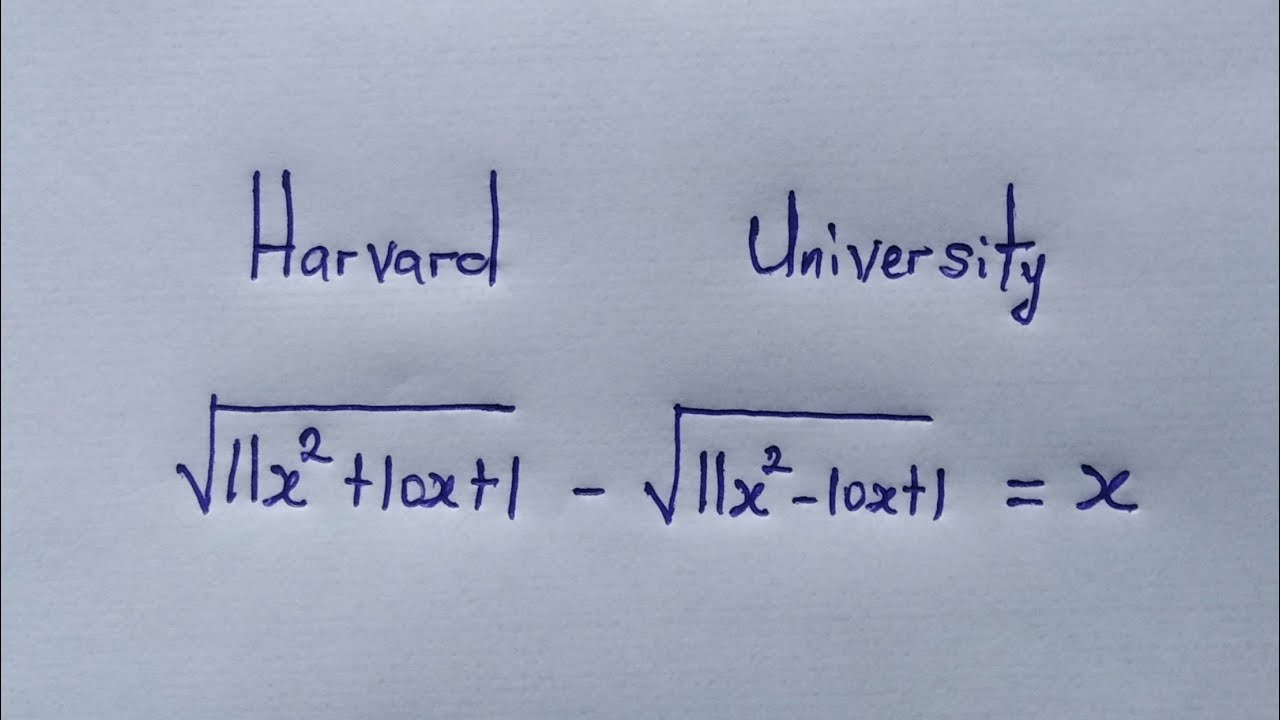 Harvard University
√11x² +10x+1 - √11x² -10x+1 = x